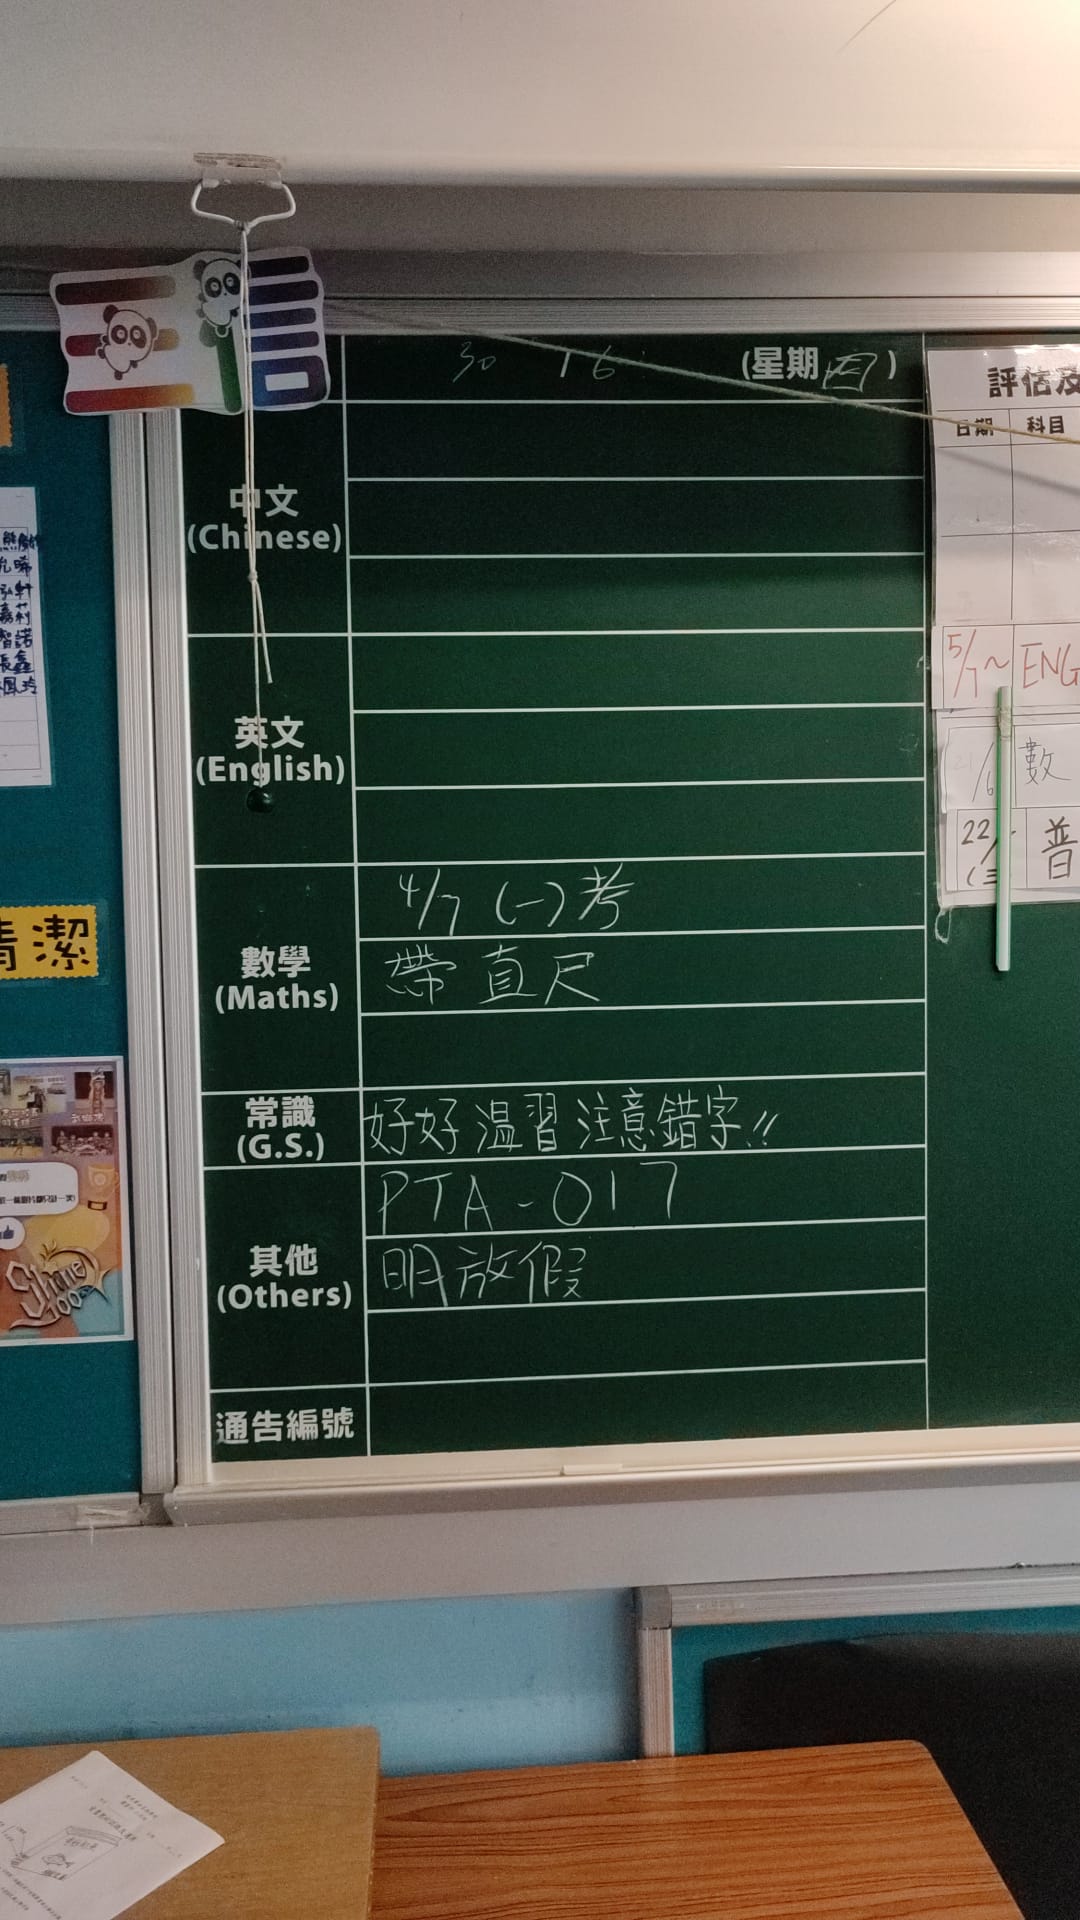 30 / 6 (星期四)
中文
(Chinese)
英文
(English)
數學
(Maths)
4/7 (一)考
帶直尺
常識
(G.S.)
好好温習 注意錯字!!
其他
(Others)
PTA-017
明放假
通告編號
評估及
日期 科目
5/7~ ENG
21/6 數
22/ (三 普
清潔
Shine
Too